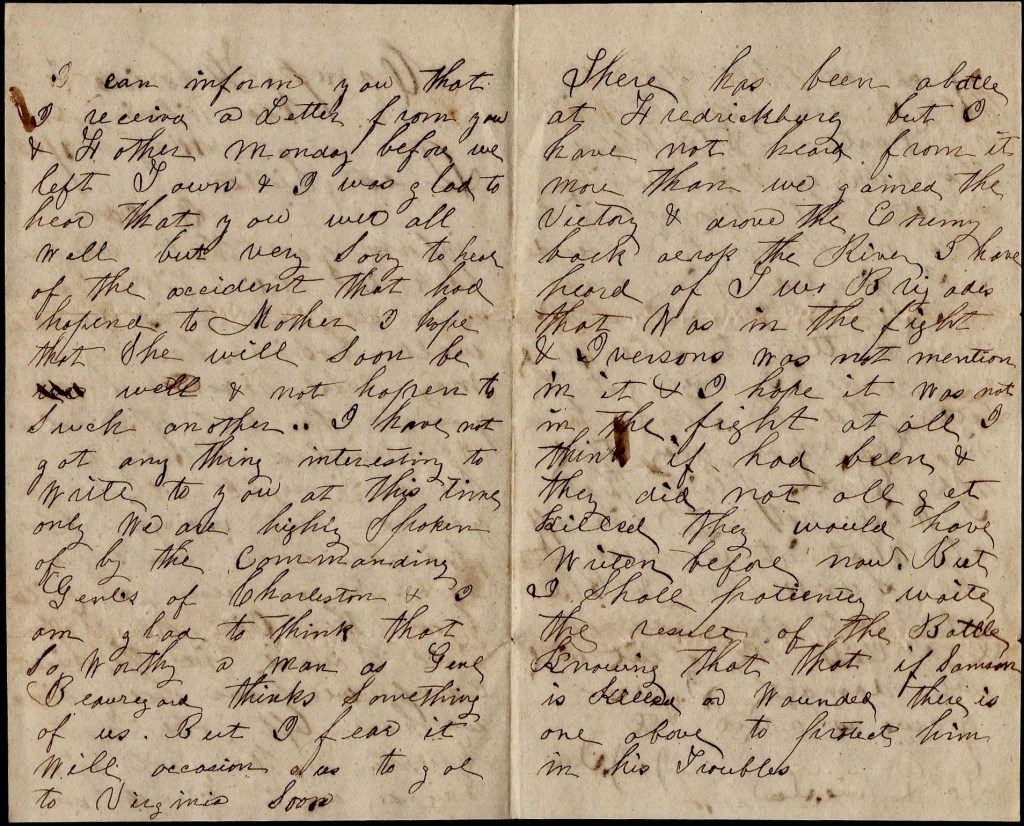 I can inform you that
I receivd a Letter from you
& Father Monday before we
left Town & I was glad to
hear that you wer all
Well but very Sory to hear
of the accident that had
hapend to Mother I hope
that She will Soon be
well & not hapen to
Such another.. I have not
got any thing interesting to
Write to you at this time
only We are highly Spoken
of by the Commanding
Genls of Charleston & I
am glad to think that
So Worthy a man as Genl
Beauregard thinks Something
of us. But I fear it
Will occasion us to go
to Virginia Soon
There has been a batle
at Fredrickburg but I
have not heard from it
more than we gained the
Victory & drove the Enemy
back acrok the River I have
heard of Two Brigades
that Was in the fight
& Iversons was not mention
in it & I hope it was not
in the fight at all I
think if had been &
they did not all get
killed they would have
Writen before now. But
I Shall patiently waite
the result of the Battle
Knowing that that if Samson
is killed or Wounded there is
one above to protect him
in his Troubles